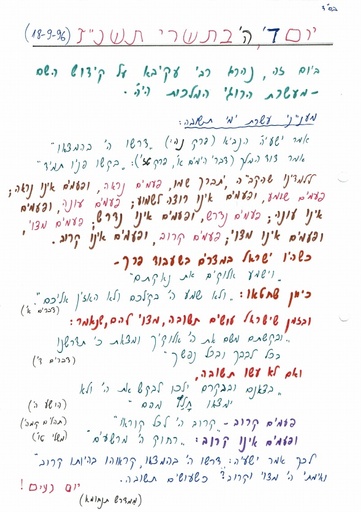 בס"ד
יום ד', ה' בתשרי תשנ"ז (18-9-96)
ביום זה, נהרג רבי עקיבא על קידוש השם
- מעשרת הרוגי המלכות הי"ד.
מעניני עשרת ימי תשובה:
אמר ישעי' הנביא (פרק נה'): "דרשו ה' בהמצאו"
אמר דוד המלך (דברי הימים א', פרק טז'): "בקשו פניו תמיד"
ללמדנו שהקב"ה, יתברך שמו, פעמים נראה, ופעמים אינו נראה;
פעמים שומע, ופעמים אינו רוצה לשמוע; פעמים עונה, ופעמים
אינו עונה; פעמים נדרש, ופעמים אינו נדרש; פעמים מצוי,
ופעמים אינו מצוי; פעמים קרוב, ופעמים אינו קרוב.
כשהיו ישראל במצרים בשעבוד פרך -
"וישמע אלוקים את נאקתם"
כיון שחטאו: "ולא שמע ה' בקולכם ולא האזין אליכם".
(דברים א')
ובזמן שישראל עושים תשובה, מצוי להם, שנאמר:
"ובקשתם משם את ה' אלוקיך ומצאת כי תדרשנו
בכל לבבך ובכל נפשך"
(דברים ד')
ואם לא עשו תשובה,
"בצאנם ובבקרם ילכו לבקש את ה' ולא
ימצאו חלץ מהם"
(הושע ה')
פעמים קרוב - "קרוב ה' לכל קוראיו"
(תהלים קמה')
ופעמים אינו קרוב: "רחוק ה' מרשעים"
(משלי טו')
לכך אמר ישעיה: דרשו ה' בהמצאו, קראוהו בהיותו קרוב"
ואימתי ה' מצוי וקרוב? כשעושים תשובה.
(ממדרש תנחומא)
יום נעים!